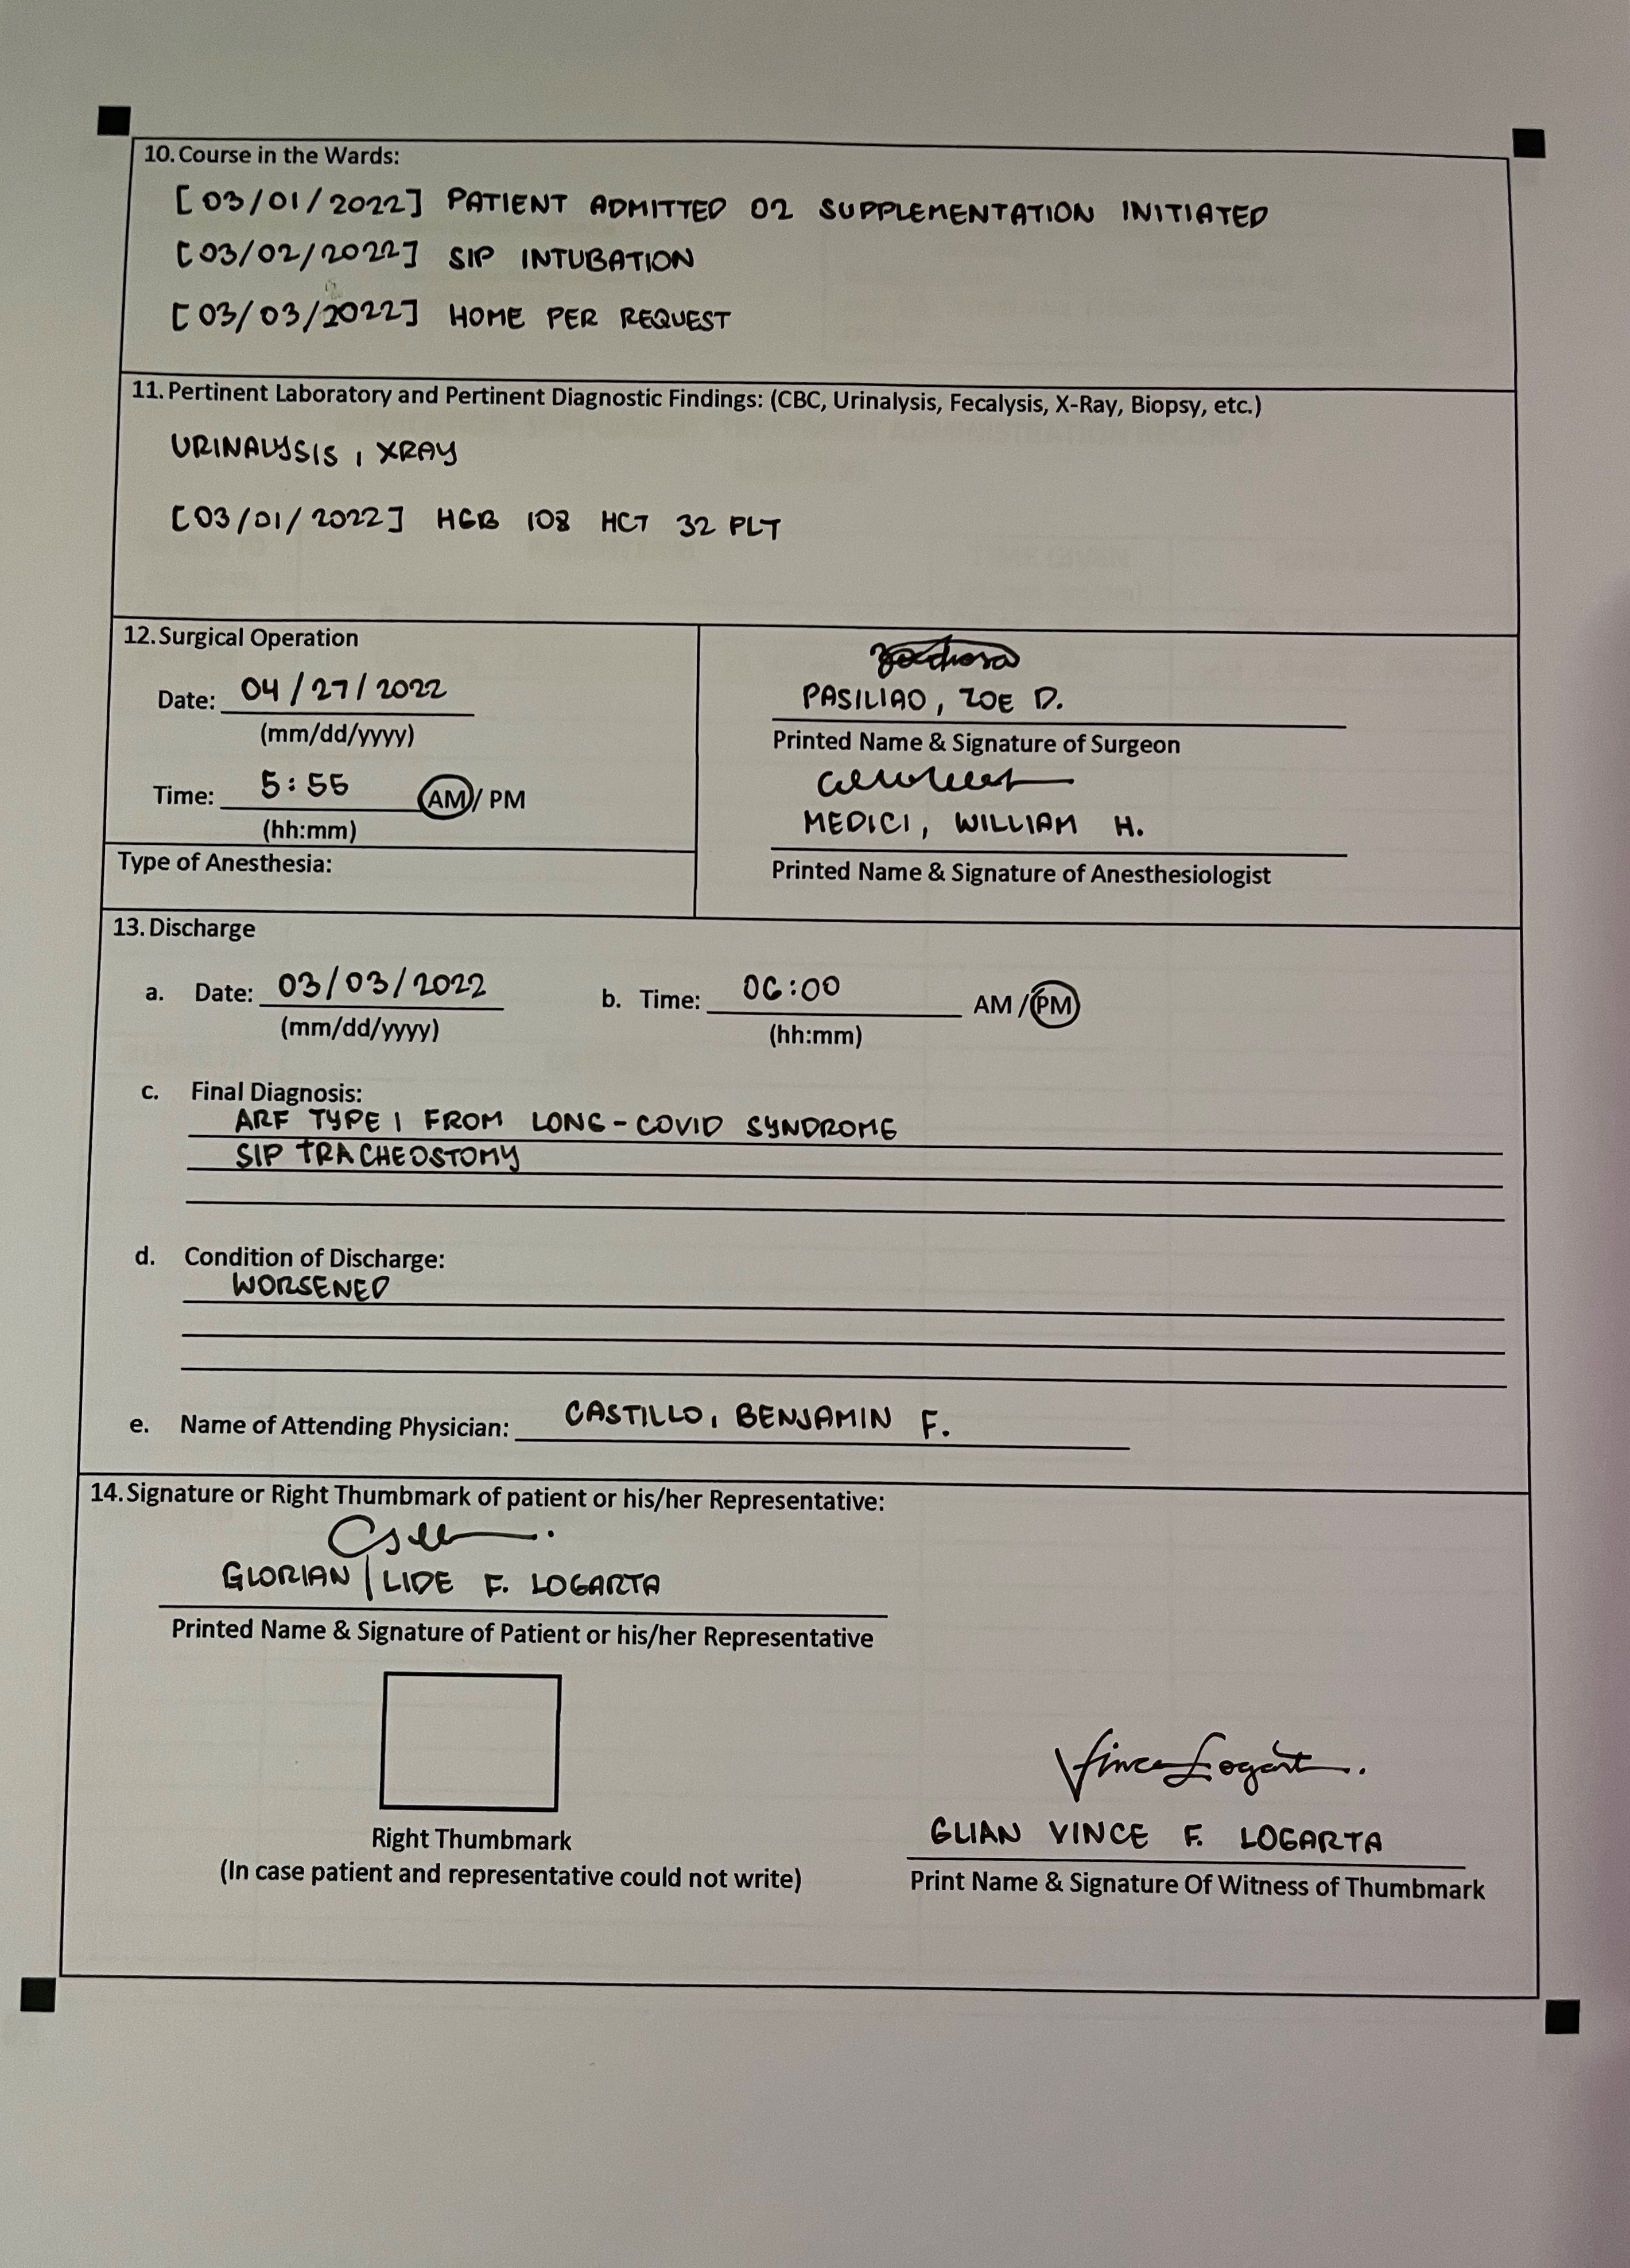 10. Course in the Wards:
[03/01/2022] PATIENT ADMITTED O2 SUPPLEMENTATION INITIATED
[03/02/2022] SIP INTUBATION
[03/03/2022] HOME PER REQUEST
11. Pertinent Laboratory and Pertinent Diagnostic Findings: (CBC, Urinalysis, Fecalysis, X-Ray, Biopsy, etc.)
URINALYSIS, XRAY
[03/01/2022] HGB 108 HCT 32 PLT
12. Surgical Operation
Date: 04/27/2022
(mm/dd/yyyy)
Time: 5:55 AM / PM
(hh:mm)
Type of Anesthesia:
PASILIAO, ZOE D.
Printed Name & Signature of Surgeon
MEDICI, WILLIAM H.
Printed Name & Signature of Anesthesiologist
13. Discharge
a. Date: 03/03/2022 b. Time: 06:00 AM / PM
(mm/dd/yyyy) (hh:mm)
c. Final Diagnosis:
ARF TYPE 1 FROM LONG-COVID SYNDROME
SIP TRACHEOSTOMY
d. Condition of Discharge:
WORSENED
e. Name of Attending Physician: CASTILLO, BENJAMIN F.
14. Signature or Right Thumbmark of patient or his/her Representative:
GLORIAN LIDE F. LOGARTA
Printed Name & Signature of Patient or his/her Representative
Right Thumbmark
(In case patient and representative could not write)
Vince Logarta
GLIAN VINCE F. LOGARTA
Print Name & Signature Of Witness of Thumbmark